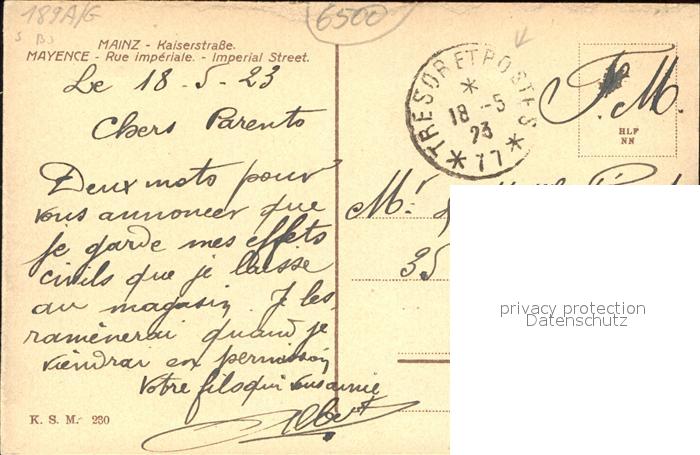 189A/G
6500
MAINZ - Kaiserstraße.
MAYENCE - Rue impériale. - Imperial Street.
Le 18-5-23
Chers Parents
Deux mots pour
vous annoncer que
je garde mes effets
civils que je laisse
au magasin. Je les
ramènerai quand je
viendrai en permission
Votre fils qui vous aime
Albert
K. S. M. 230
TRESOR ET POSTES
18 -5
23
*77*
F.M.
HLF
NN
Mr
35
privacy protection
Datenschutz